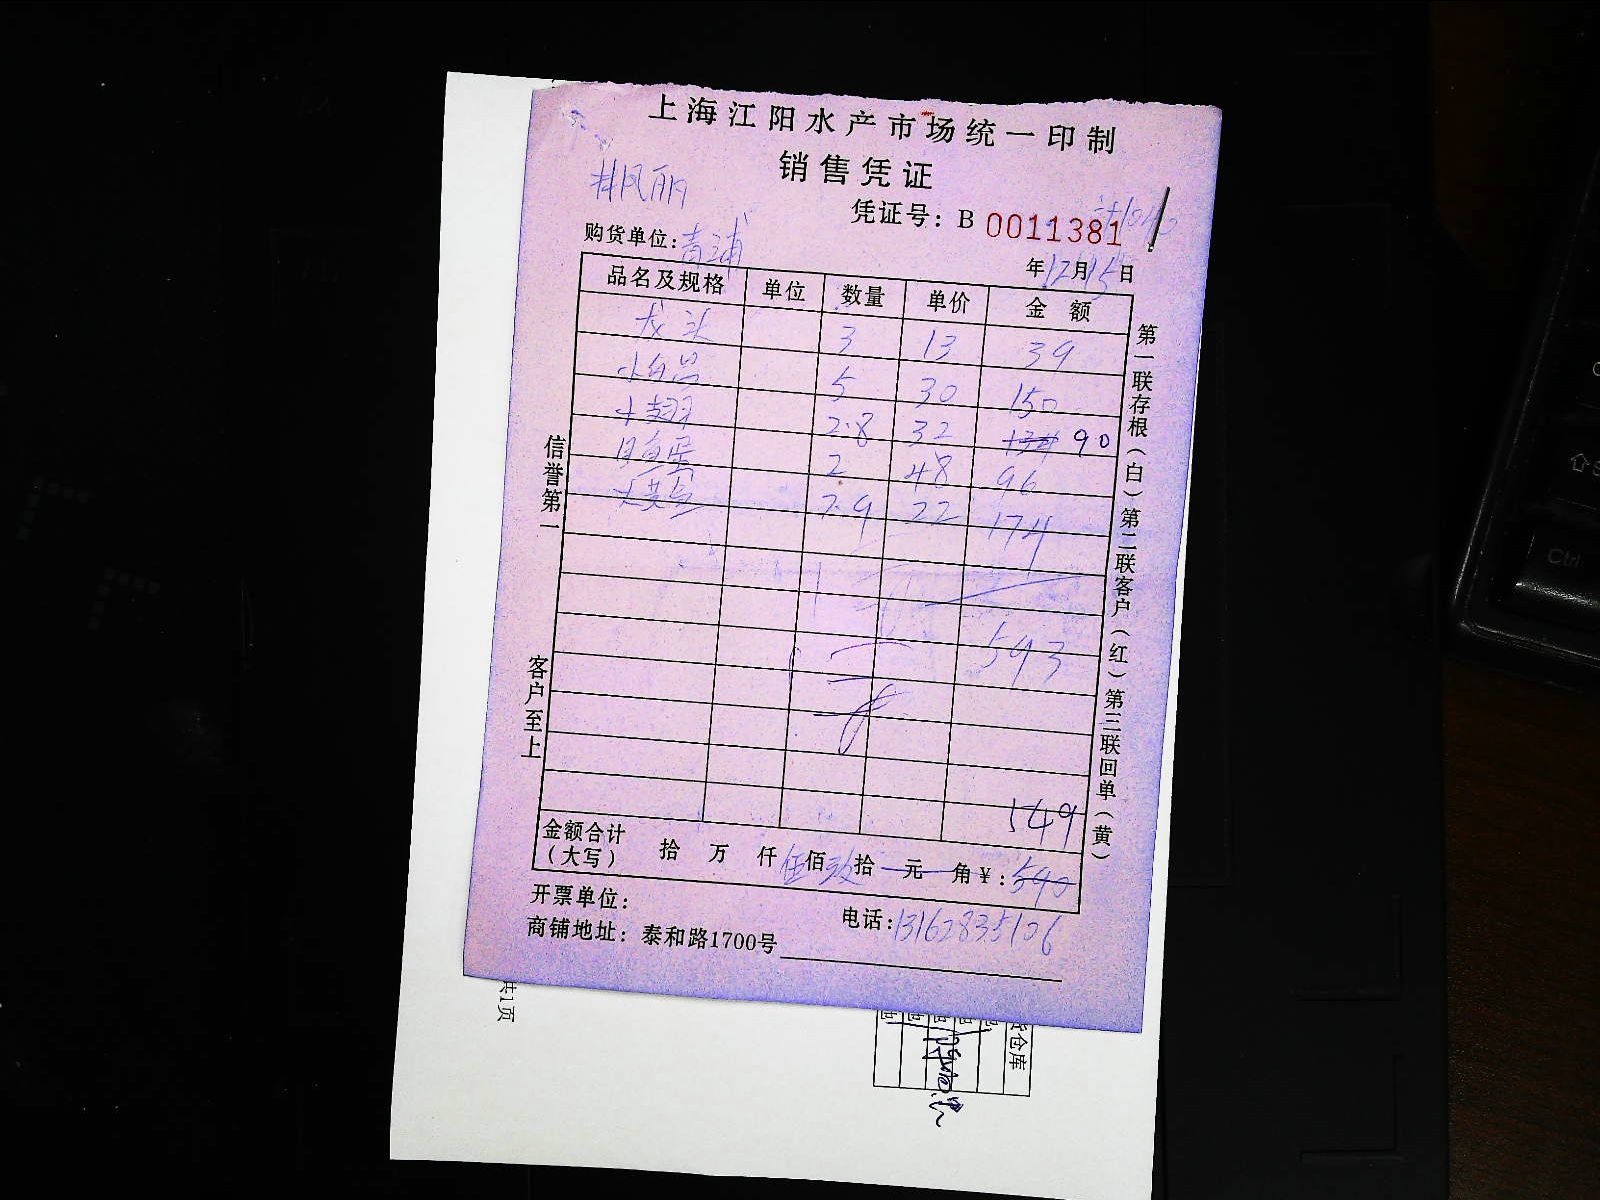 上海江阳水产市场统一印制
销售凭证
林凤丽
凭证号：B 0011381
购货单位：青浦
年12月15日
品名及规格 单位 数量 单价 金 额
龙头 3 13 39
小白吕 5 30 150
小翅 2.8 32 134 90
目鱼蛋 2 48 96
7.9 22 174
593
549
金额合计（大写） 拾 万 仟 伍佰玖拾 元 角￥：590
开票单位：
电话：13162835106
商铺地址：泰和路1700号
信誉第一
客户至上
第一联存根（白）第二联客户（红）第三联回单（黄）
共1页
仓库